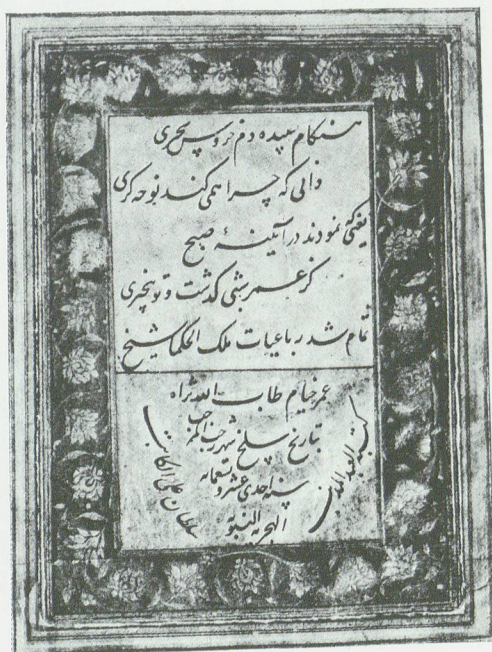 هنگام سپیده دم خروس سحری
دانی که چرا همی کند نوحه گری
یعنی که نمودند در آیینهٔ صبح
کز عمر شبی گذشت و تو بیخبری
تمام شد رباعیات ملک الحکما شیخ
عمر خیام طاب الله ثراه
بتاریخ سلخ شهر رجب المرجب
سنه احدی عشر و تسعمائه
الهجریه النبویه
کتبه العبد المذنب
سلطان علی الکاتب